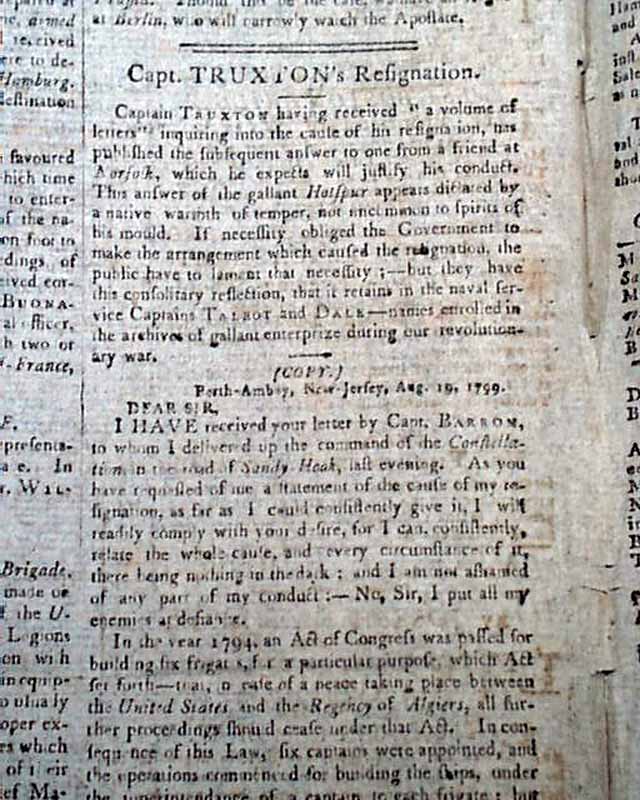 at Berlin, who will narrowly watch the Apostate.
Capt. TRUXTON's Resignation.
Captain TRUXTON having received "a volume of
letters" inquiring into the cause of his resignaion, has
published the subsequent answer to one from a friend at
Norfolk, which he expects will justify his conduct.
This answer of the gallant Hotspur appears dictated by
a native warmth of temper, not uncommon to spirits of
his mould. If necessity obliged the Government to
make the arrangement which caused the resignation, the
public have to lament that necessity;—but they have
this consolitary reflection, that it retains in the naval ser-
vice Captains TALBOT and DALE—names enrolled in
the archives of gallant enterprize during our revolution-
ary war.
(COPY.)
Perth-Amboy, New-Jersey, Aug. 19, 1799.
DEAR SIR,
I HAVE received your letter by Capt. BARRON,
to whom I delivered up the command of the Constella-
tion in the road of Sandy Hook, last evening. As you
have requested of me a statement of the cause of my re-
signation, as far as I could consistently give it, I will
readily comply with your desire, for I can, consistently,
relate the whole cause, and every circumstance of it,
there being nothing in the dark; and I am not ashamed
of any part of my conduct:—No, Sir, I put all my
enemies at defiance.
In the year 1794, an Act of Congress was passed for
building six frigates, for a particular purpose, which Act
set forth—that, in case of a peace taking place between
the United States and the Regency of Algiers, all fur-
ther proceedings should cease under that Act. In con-
sequence of this Law, six captains were appointed, and
the operations commenced for building the ships, under
the superintendance of a captain to each frigate: but
armed
received
Hamburg.
destination
favoured
which time
to enter-
of the na-
on foot to
BUONA-
two or
France,
representa-
In
WIL-
Brigade,
the U-
Legions
on with
which
of their